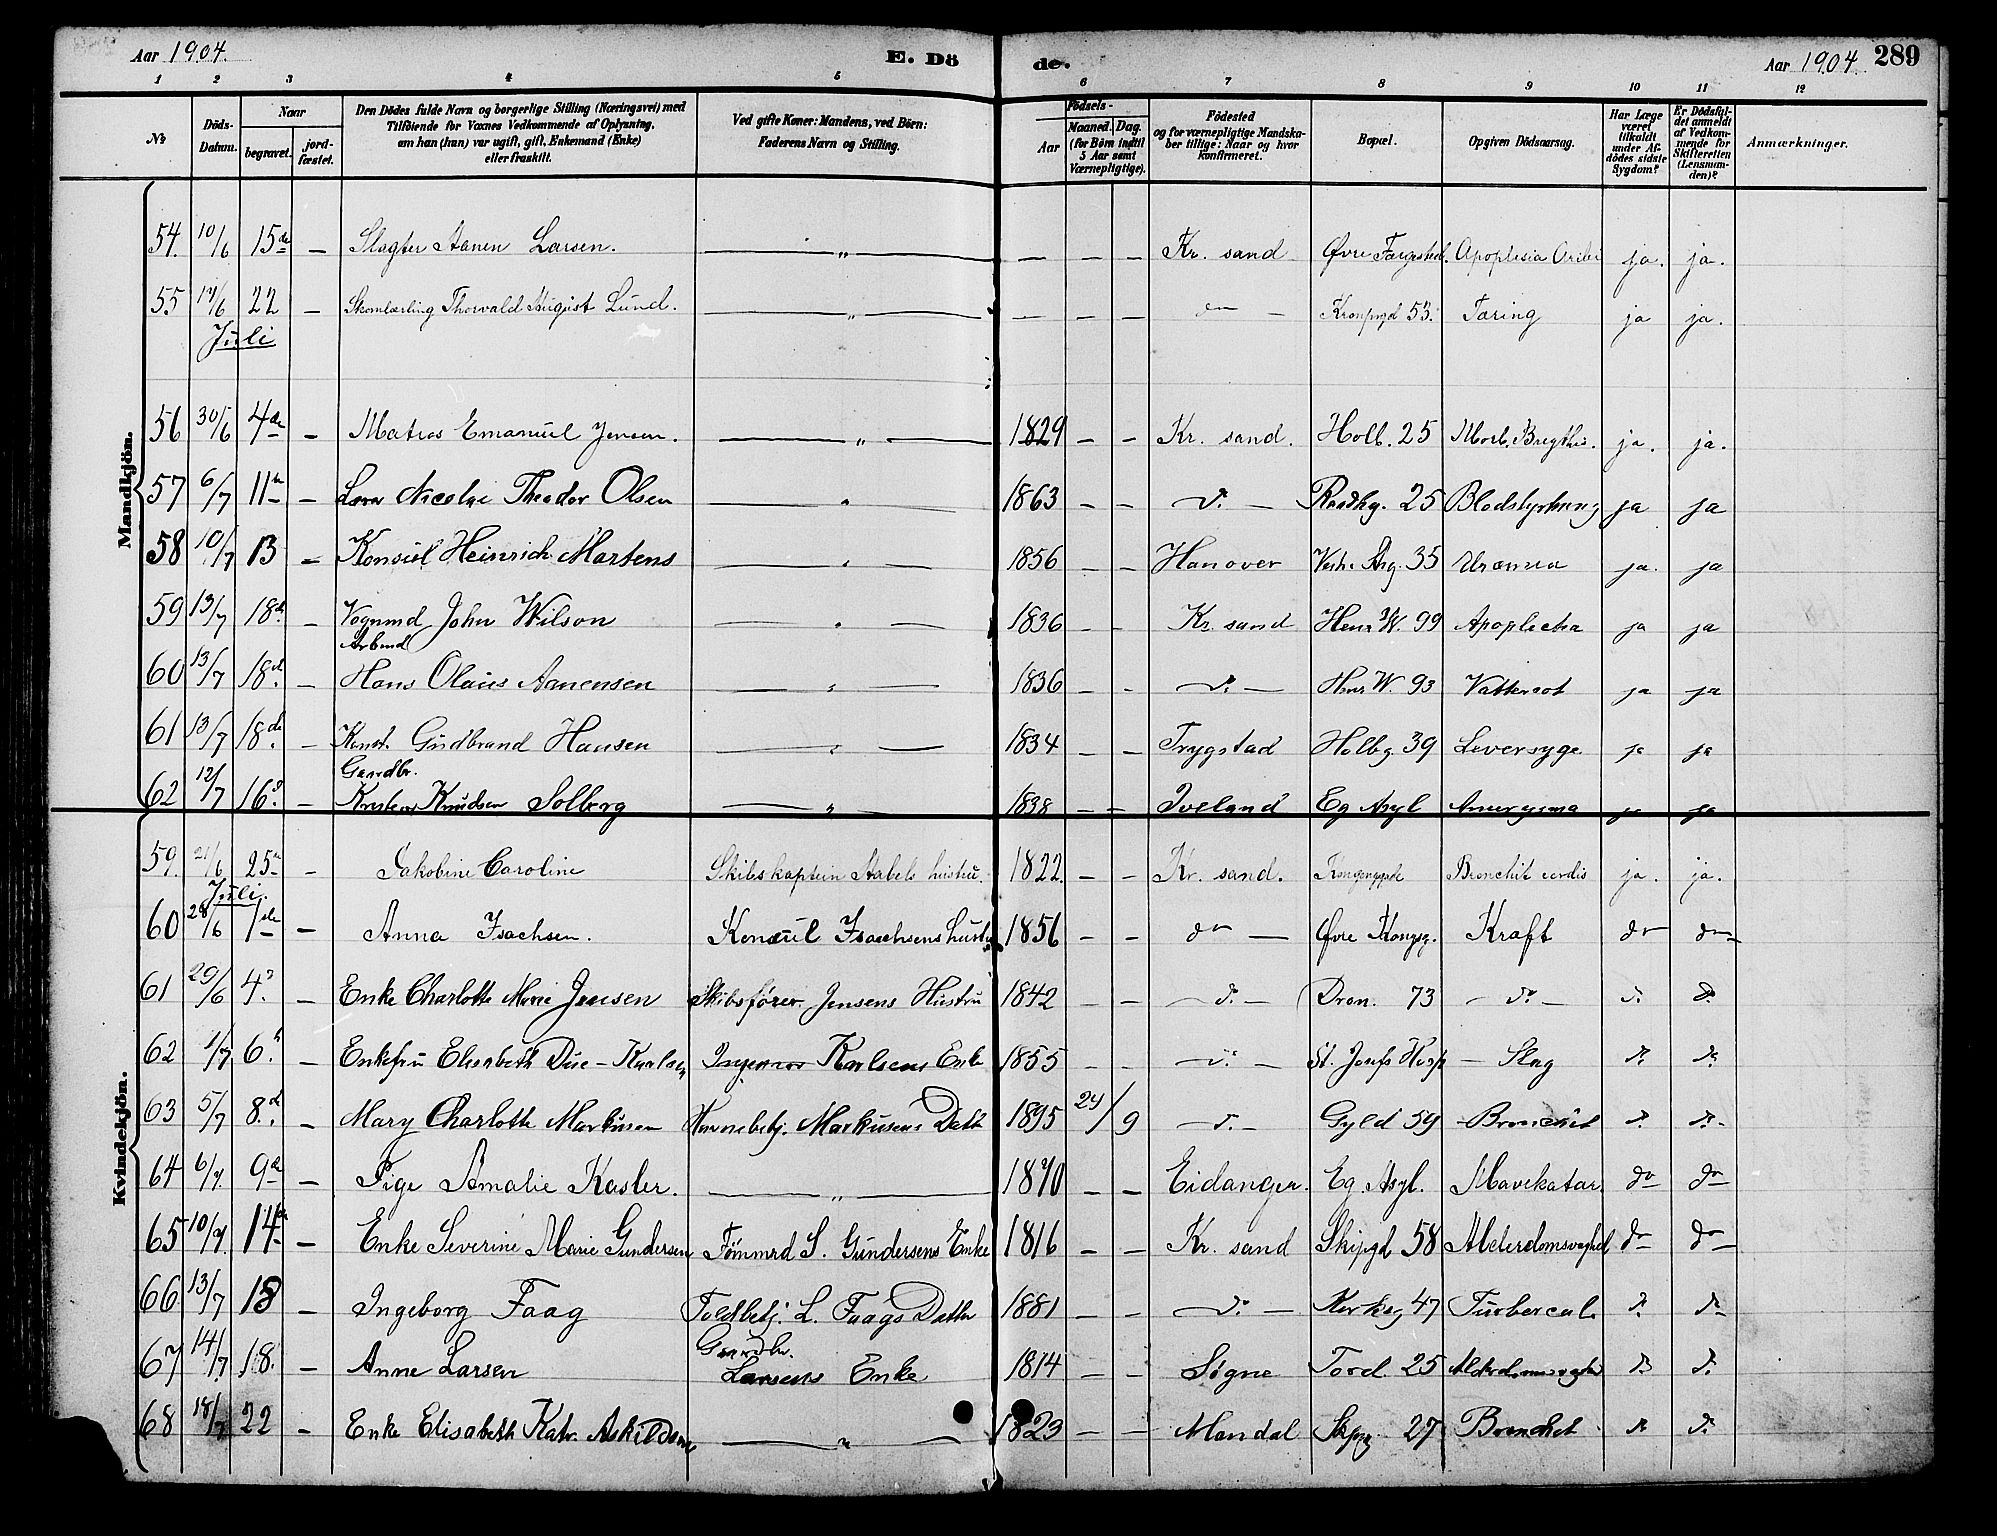 Aar 1904. E. Dö de. Aar 1904. 289
1 2 3 4 5 6 7 8 9 10 11 12
№ Döds-Datum. Naar begravet. jord-fæstet. Den Dödes fulde Navn og borgerlige Stilling (Næringsvei) med Tilföiende for Voxnes Vedkommende af Oplysning, om han (hun) var ugift, gift, Enkemand (Enke) eller fraskilt. Ved gifte Koner: Mandens, ved Börn: Faderens Navn og Stilling. Födsels- Aar Maaned. Dag. (for Börn indtil 5 Aar samt Værnepligtige). Födested og for værnepligtige Mandska-ber tillige: Naar og hvor konfirmeret. Bopæl. Opgiven Dödsaarsag. Har Læge været tilkaldt under Af-dödes sidste Sygdom? Er Dödsfal-det anmeldt af Vedkom-mende for Skifteretten (Lensman-den)? Anmærkninger.
Mandkjön.
54. 10/6 15de — Slagter Aanen Larsen. — „ — — — — Kr. sand Øvre Apoplesia ja. ja.
55 17/6 22 — Skomlærling Thorvald August Lund. — „ — — — — do — 53. Tæring ja ja.
Juli
56 30/6 4de — Matros Emanuel Jensen. — „ — 1829 — — Kr. sand. Holb. 25 Morb. ja. ja.
57 6/7 11te — Nicolai Theodor Olsen — „ — 1863 — — do — Raadhg. 25 Blodstyrtning ja ja
58 10/7 13 — Konsul Heinrich Martens — „ — 1856 — — Hanover 35 Uræmia ja. ja
59 13/7 18d. — Vognmd John Wilson — „ — 1836 — — Kr. sand Henr W. 99 Apoplectia ja ja
Arbmd
60 13/7 18d. — Hans Olaus Aanensen — „ — 1836 — — do — Henr W. 93 Vattersot ja ja
61 13/7 18de — Konst. Gudbrand Hansen — „ — 1834 — — Trygstad Holbg 39 Leversyge ja ja
Gaardbr.
62 12/7 16d — Knudsen Solberg — „ — 1838 — — Iveland Eg Asyl Aneurysma ja ja
Kvindekjön.
59. 21/6 25de — Jakobine Caroline Skibskaptein Stabels hustru. 1822. — — Kr. sand. Bronchit cordis ja. ja.
Juli.
60 28/6 1ste — Anna Isachsen. Konsul Isachsens hustru 1856 — — do — Øvre Kongsg. Kraft do do
61 29/6 4d. — Enke Charlotte Marie Jensen Skibsfører Jensens Hustru 1842 — — do — Dron. 73 do — do do
62 1/7 6. — Enkefru Elisabeth Due-Karlsen Karlsens Enke 1855 — — do — St. Josefs Hosp — Slag do do
63 5/7 8d. — Mary Charlotte Markusen Havnebetj. Markusens Datt 1895 24/9 do — Gyld 59 Bronchit do do
64 6/7. 9de — Pige Amalie Kasler. — „ — 1870 — — Eidanger. Eg. Asyl. Mavekatar. do do
65 10/7. 14de — Enke Severine Marie Gundersen Tømmrd S. Gundersens Enke 1816 — — Kr. sand Skipgd 58 Alderdomsvaghed do do
66 13/7 18 — Ingeborg Faag Toldbetj. L. Faags Datter 1881 — — do — Kirkeg 47 Turbercul. do do
Gaardbr.
67 14/7 18. — Anne Larsen Larsens Enke 1814 — — Søgne Tord. 25 Alderdomsvaghed do do
68 18/7 22 — Enke Elisabeth Katr. Askildsen — „ — 1823 — — Mandal Skipg 27 Bronchit do do